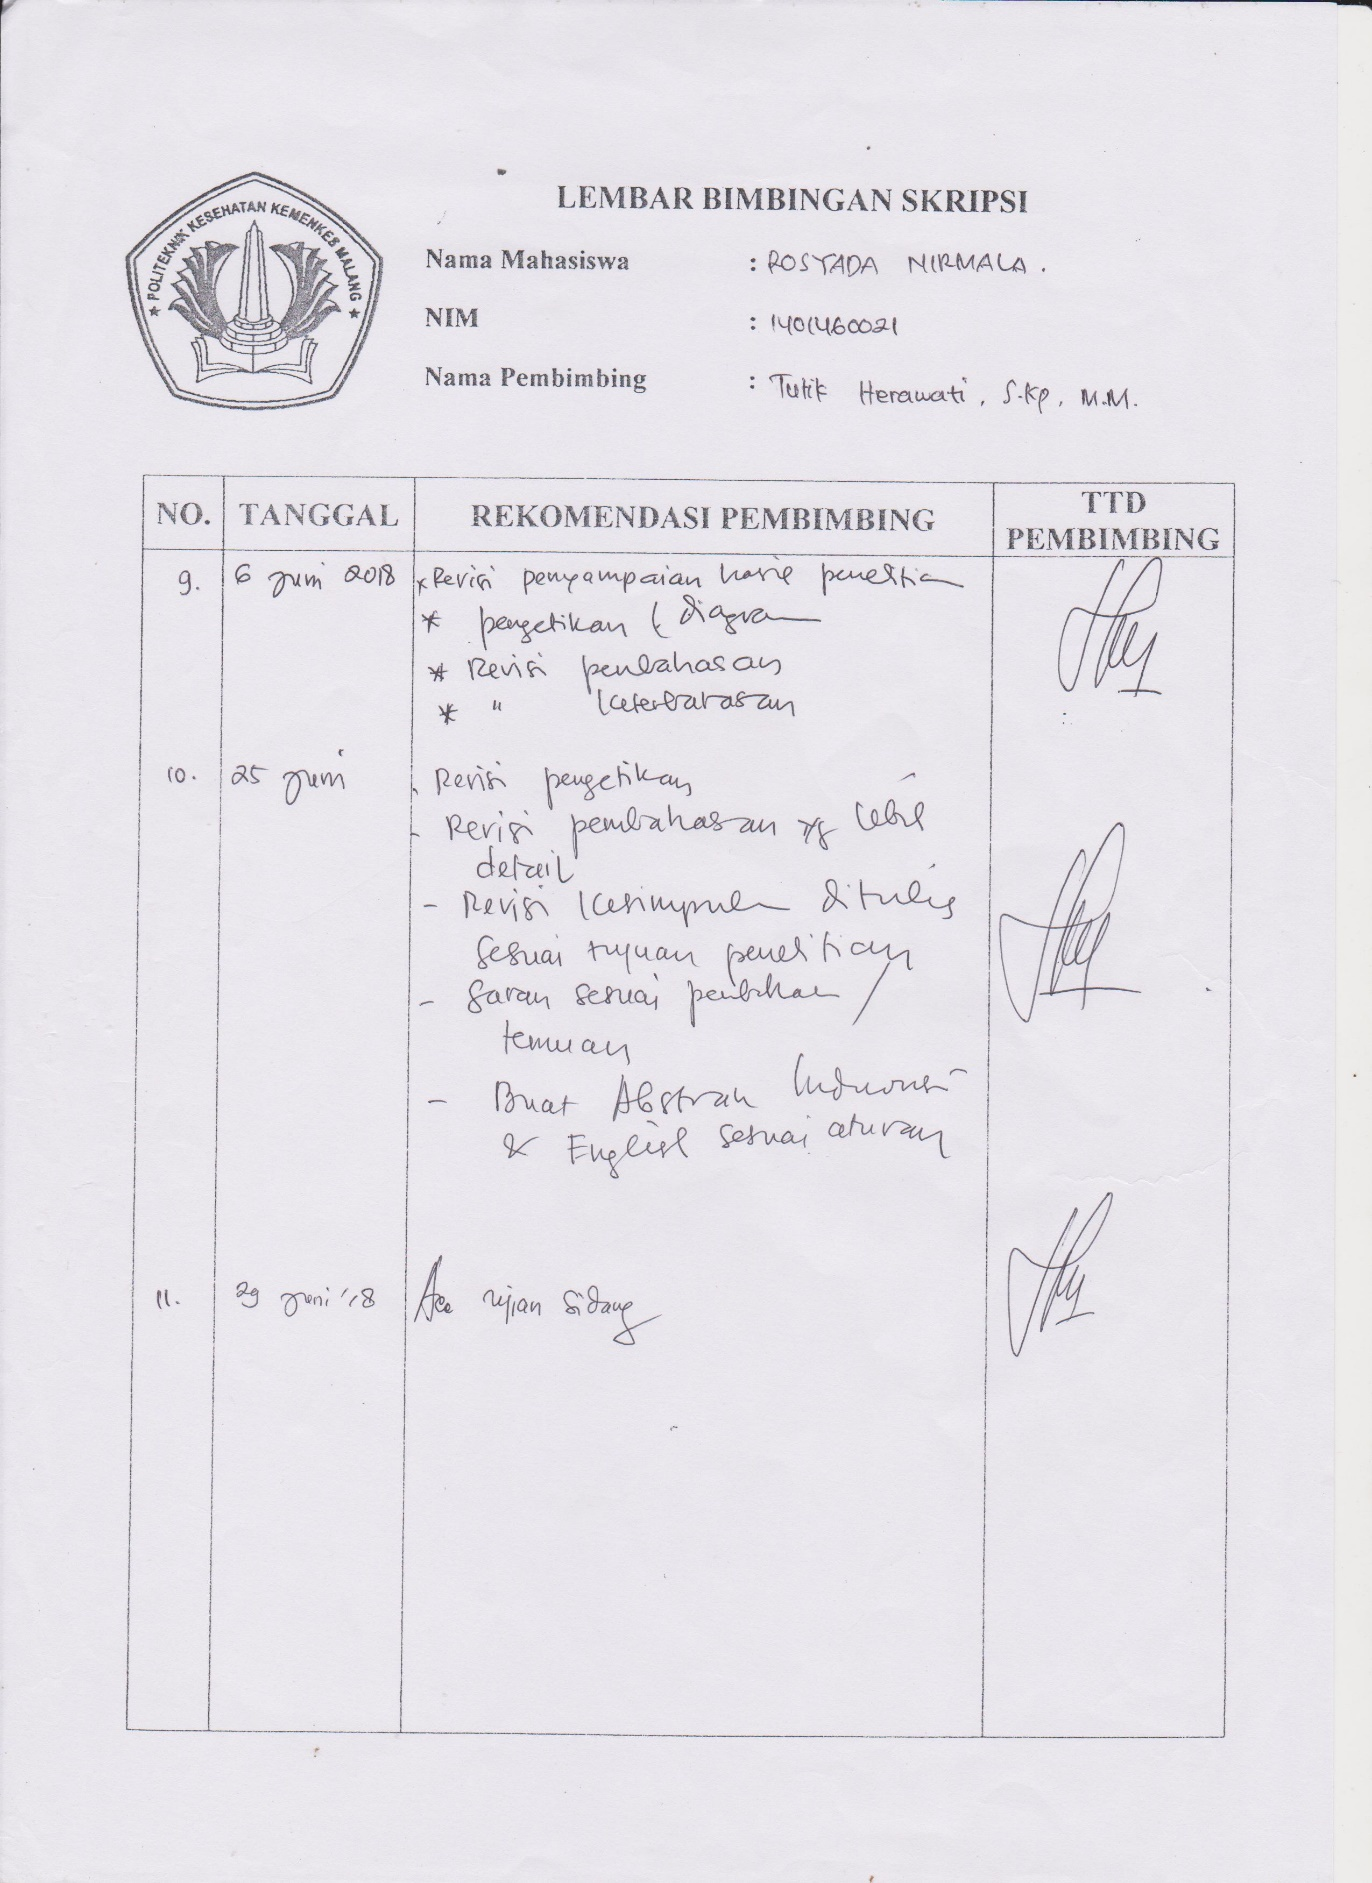 POLITEKNIK KESEHATAN KEMENKES MALANG
LEMBAR BIMBINGAN SKRIPSI
Nama Mahasiswa : ROSYADA NIRMALA.
NIM : 1401460021
Nama Pembimbing : Tutik Herawati, S.Kp, M.M.
NO. TANGGAL REKOMENDASI PEMBIMBING TTD PEMBIMBING
9. 6 Juni 2018 * Revisi penyampaian hasil penelitian
* pengetikan & diagram
* Revisi pembahasan
* " keterbatasan
10. 25 Juni - Revisi pengetikan
- Revisi pembahasan yg lebih
detail
- Revisi kesimpulan ditulis
sesuai tujuan penelitian
- Saran sesuai pembahasan /
temuan
- Buat Abstrak Indonesia
& English sesuai aturan
11. 29 Juni '18 Acc ujian sidang